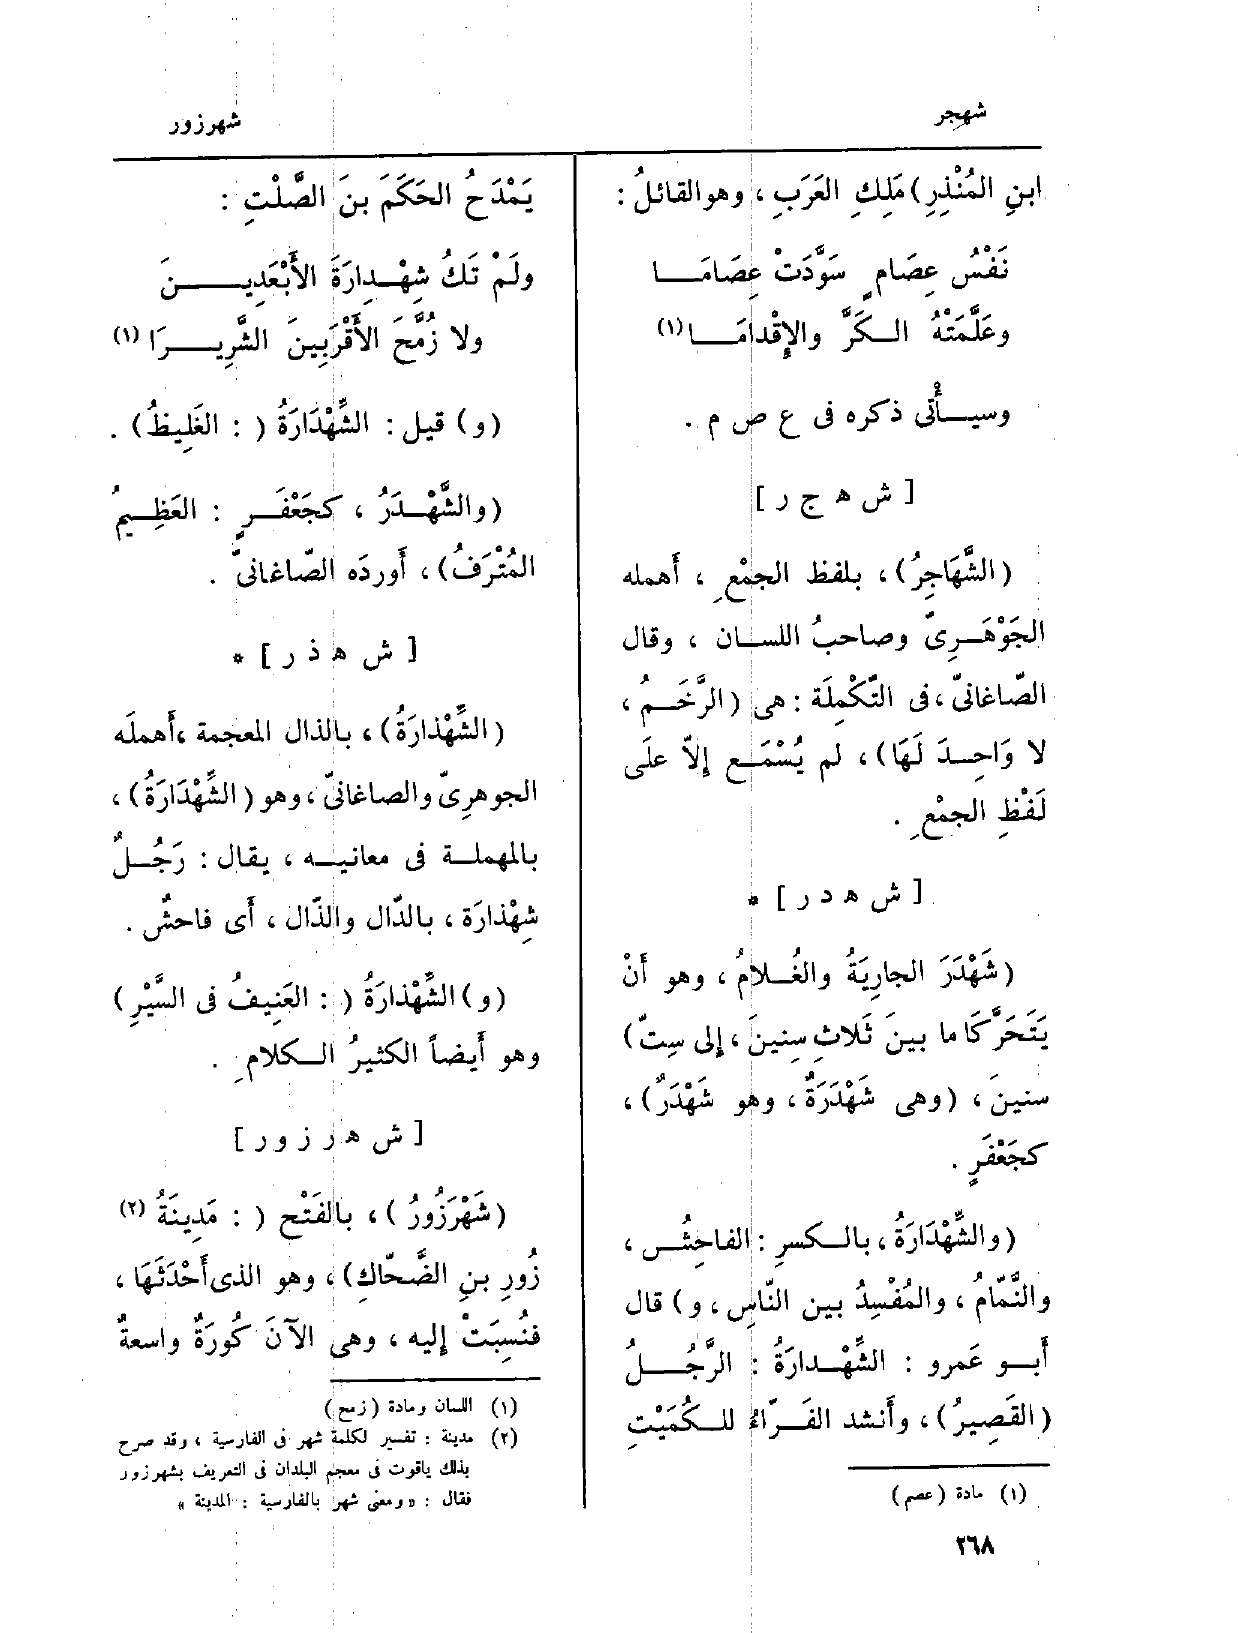 شهجر
شهرزور
ابنِ المُنْذِرِ) مَلِكِ العَرَبِ ، وهو القائلُ :
نَفْسُ عِصَامٍ سَوَّدَتْ عِصَامَــا
وعَلَّمَتْهُ الــكَرَّ والإِقْدامَــا (١)
وسيــأْتى ذكره فى ع ص م .
[ ش ه ج ر ]
(الشَّهَاجِرُ) ، بلفظ الجمْعِ ، أَهمله
الجَوْهَــرِىّ وصاحبُ اللســان ، وقال
الصّاغانىّ ، فى التَّكْمِلَة : هى (الرَّخَــمُ ،
لا وَاحِــدَ لَهَا) ، لم يُسْمَــع إِلاّ علَى
لَفْظِ الجمْعِ .
[ ش ه د ر ] *
(شَهْدَرَ الجارِيَةُ والغُــلامُ ، وهو أَنْ
يَتَحَرَّكَا ما بينَ ثَلاثِ سِنينَ ، إِلى سِتّ)
سنينَ ، (وهى شَهْدَرَةٌ ، وهو شَهْدَرٌ) ،
كجَعْفَرٍ .
(والشِّهْدَارَةُ ، بالــكسرِ : الفاحِشُ ،
والنَّمّامُ ، والمُفْسِدُ بين النّاسِ ، و) قال
أَبــو عَمرو : الشِّهْــدارَةُ : الرَّجُــلُ
(القَصِيرُ) ، وأَنشد الفَــرّاءُ للــكُمَيْتِ
(١) مادة (عصم)
يَمْدَحُ الحَكَمَ بنَ الصَّلْتِ :
ولَمْ تَكُ شِهْــدِارَةَ الأَبْعَدِيــــنَ
ولا زُمَّحَ الأَقْرَبِينَ الشَّرِيــرَا (١)
(و) قيل : الشِّهْدَارَةُ ( : الغَلِيظُ) .
(والشَّهْــدَرُ ، كجَعْفَــرٍ : العَظِيــمُ
المُتْرَفُ) ، أَوردَه الصّاغانىّ .
[ ش ه ذ ر ] *
(الشِّهْذارَةُ) ، بالذال المعجمة ، أَهملَه
الجوهرِىّ والصاغانىّ ، وهو (الشِّهْدَارَةُ) ،
بالمهملــة فى معانيــه ، يقال : رَجُــلٌ
شِهْذارَة ، بالدّال والذّال ، أَى فاحشٌ .
(و) الشِّهْذارَةُ ( : العَنِيفُ فى السَّيْرِ)
وهو أَيضاً الكثيرُ الــكلامِ .
[ ش ه ر ز و ر ]
(شَهْرَزُورُ ) ، بالفَتْح ( : مَدِينَةُ (٢)
زُورِ بنِ الضَّحّاكِ) ، وهو الذى أَحْدَثَهَا ،
فنُسِبَتْ إِليه ، وهى الآنَ كُورَةٌ واسعةٌ
(١) اللسان ومادة (زمح)
(٢) مدينة : تفسير لكلمة شهر فى الفارسية ، وقد صرح
بذلك ياقوت فى معجم البلدان فى التعريف بشهرزور
فقال : « ومعنى شهر بالفارسية : المدينة »
٢٦٨